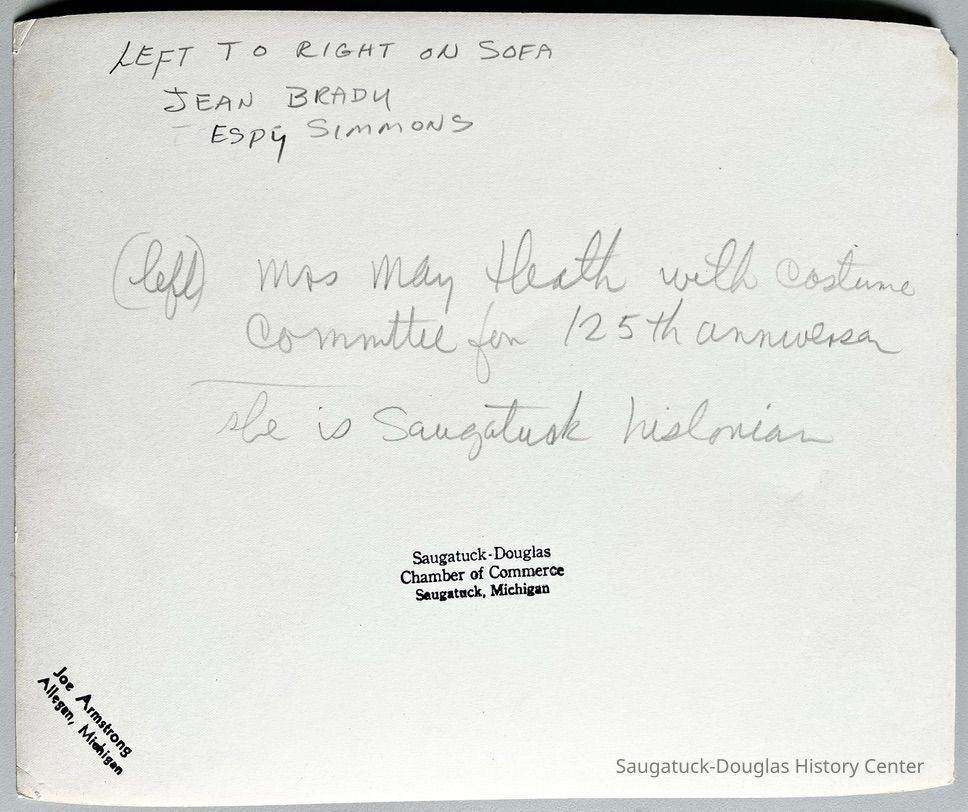 LEFT TO RIGHT ON SOFA
JEAN BRADY
ESPY SIMMONS
(left) Mrs May Heath with costume
committee for 125th anniversar
she is Saugatuck historian
Saugatuck-Douglas
Chamber of Commerce
Saugatuck, Michigan
Joe Armstrong
Allegan, Michigan
Saugatuck-Douglas History Center